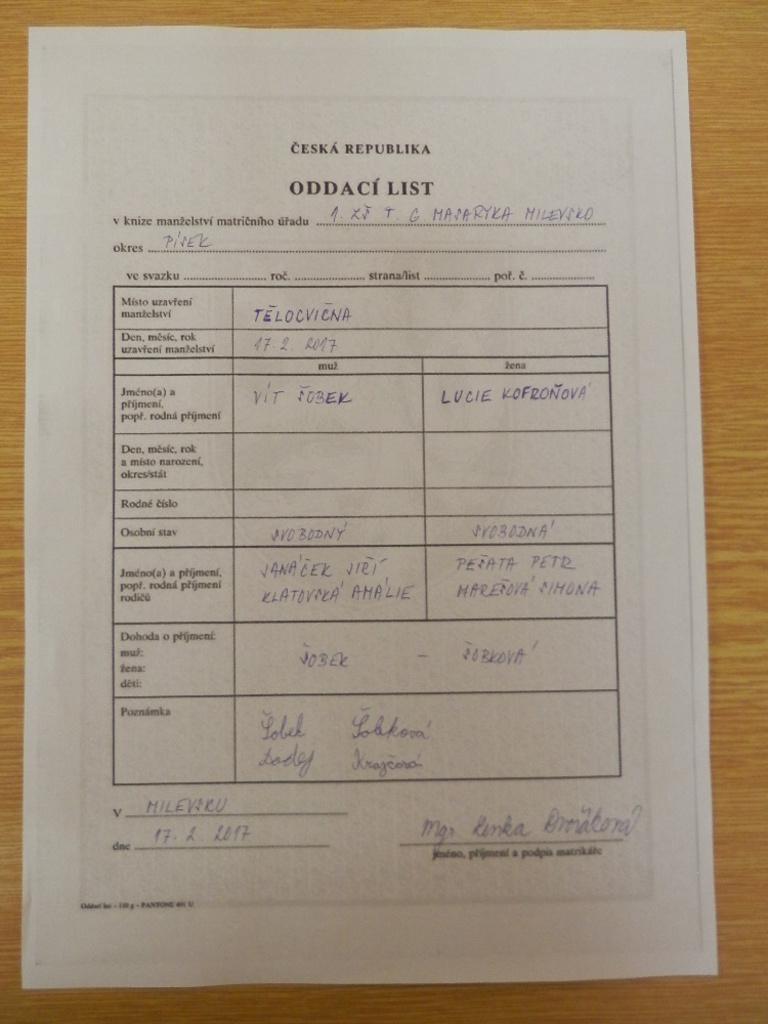 ČESKÁ REPUBLIKA
ODDACÍ LIST
v knize manželství matričního úřadu 1. ZŠ T. G. MASARYKA MILEVSKO
okres PÍSEK
ve svazku roč. strana/list poř. č.
Místo uzavření manželství TĚLOCVIČNA
Den, měsíc, rok uzavření manželství 17. 2. 2017
muž žena
Jméno(a) a příjmení, popř. rodná příjmení VÍT ŠOBEK LUCIE KOFROŇOVÁ
Den, měsíc, rok
a místo narození,
okres/stát
Rodné číslo
Osobní stav SVOBODNÝ SVOBODNÁ
Jméno(a) a příjmení, JANÁČEK JIŘÍ PEŠATA PETR
popř. rodná příjmení rodičů KLATOVSKÁ AMÁLIE MAREŠOVÁ SIMONA
Dohoda o příjmení:
muž: ŠOBEK – ŠOBKOVÁ
žena:
děti:
Poznámka Šobek Šobková
Krajčová
V MILEVSKU
dne 17. 2. 2017 Mgr. Lenka Dvořáková
jméno, příjmení a podpis matrikáře
Oddací list – 110 g – PANTONE 401 U